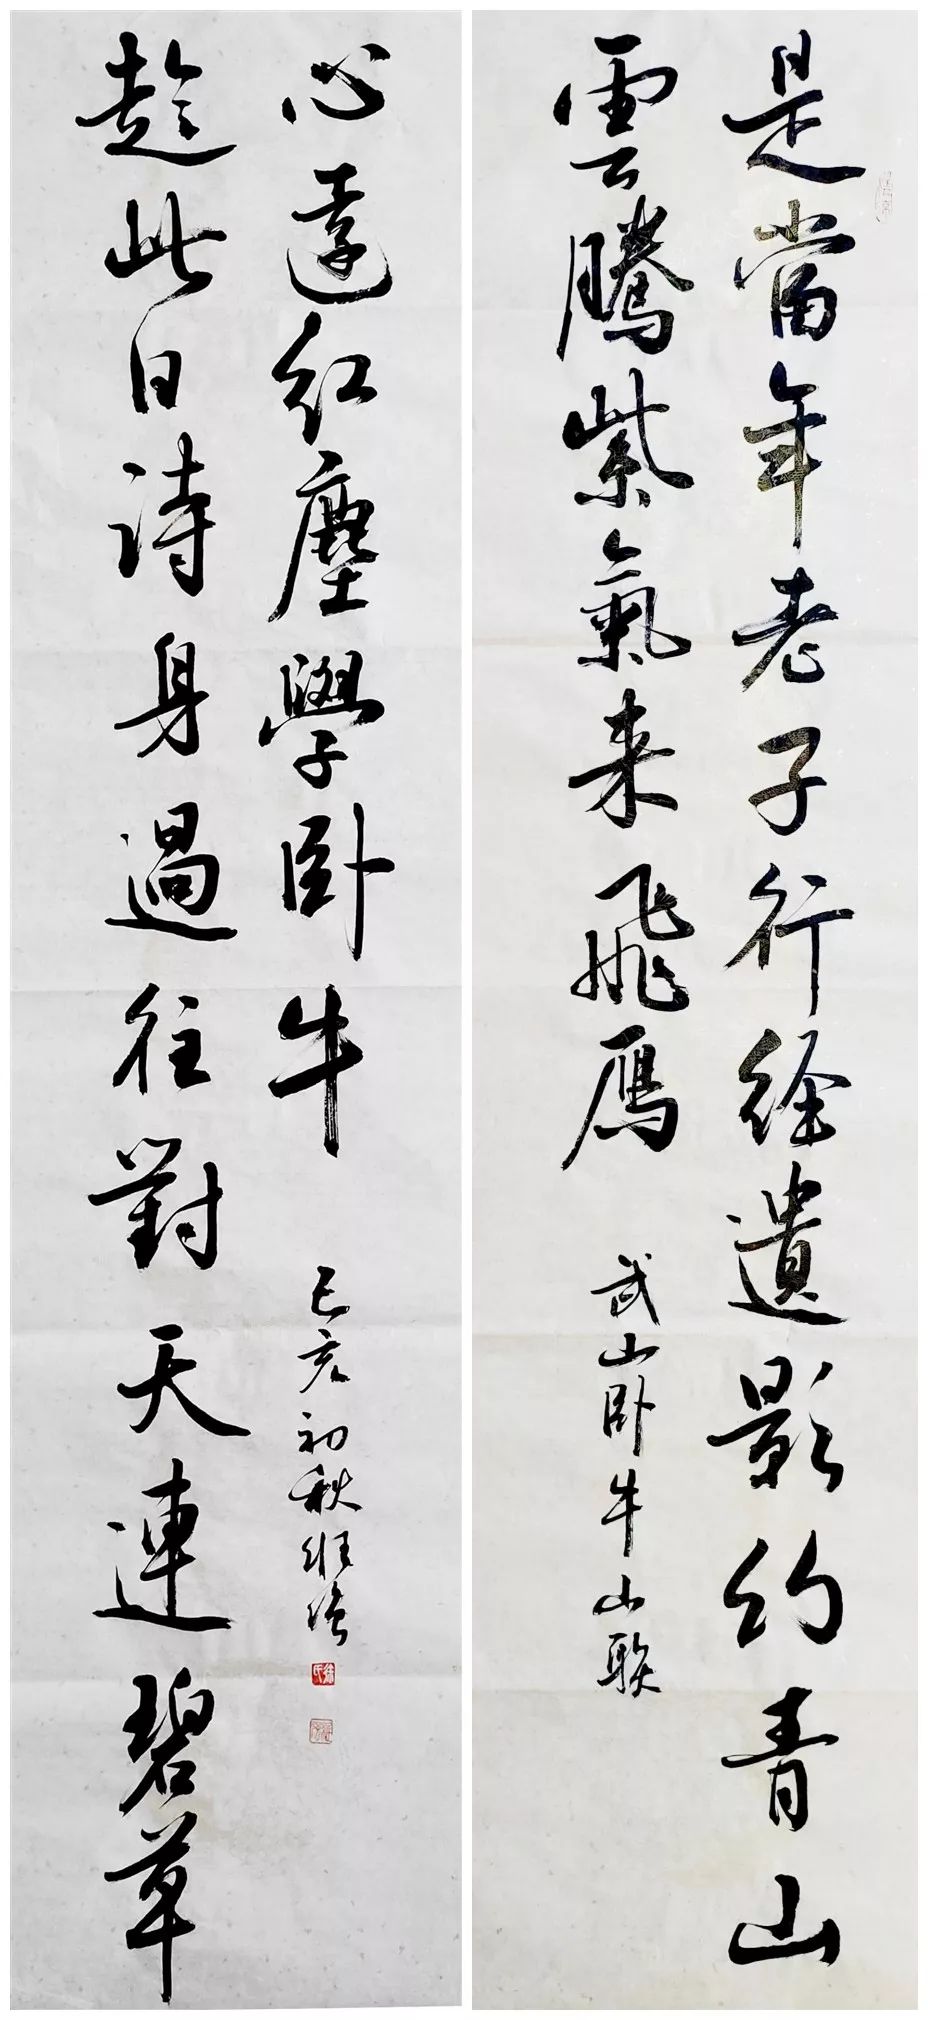 是當年老子行经遺影约青山
雲騰紫氣来飛鴈
武山卧牛山联
趁此日诗身過往對天連碧草
心遠红塵學卧牛
己亥初秋